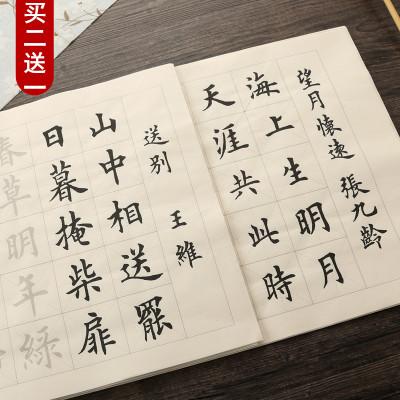 买二送一
望月懷遠 張九齡
海上生明月
天涯共此時
送别 王維
山中相送罷
日暮掩柴扉
春草明年綠